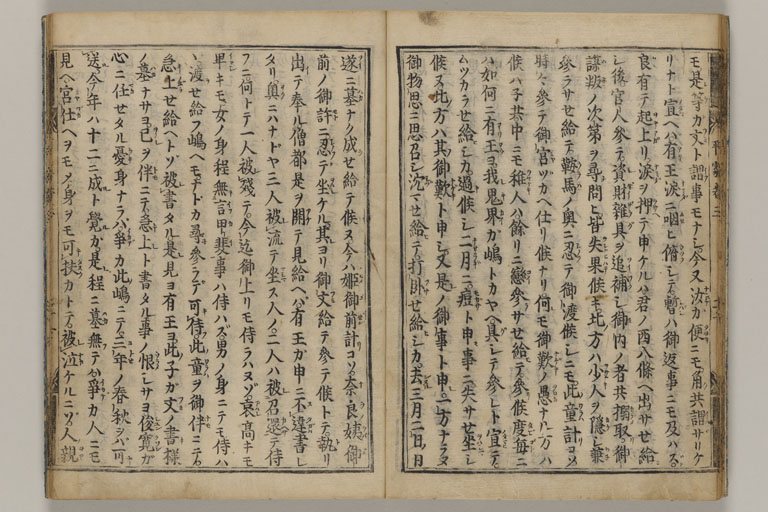 モ是等カ丈ト謂事モナシ今又汝カ便ニモ角共謂サリケ
リナト宣ヘハ有王涙ニ咽ヒ俯シテ暫ハ御返事ニモ及ハス
良有テ起上リ涙ヲ押ヘテ申ケルハ君ノ西八條ヘ出サセ給
シ後官人参テ資財雜具ヲ追補シ御内ノ者共搦取御
謀叛ノ次第ヲ尋問ヒ皆失果候キ北方ハ少人ヲ隱シ兼
参ラサセ給テ鞍馬ノ奥ニ忍テ御渡候シニモ此童計コソ
時々参テ御宮ツカヘ仕リ候ナリ何モ御歎ノ愚ナル方ハ
候ハ子共中ニモ稚人ハ餘リニ戀参ラサセ給テ参候度毎ニ
ハ如何ニ有王ヨ我鬼界カ嶋トカヤヘ具シテ参レト宣テ
ムツカラセ給シカ過候シ二月ニ痘ト申事ニ失サセ坐シ
候ヌ北方ハ其御歎ト申シ又是ノ御事ト申シ一方ナラヌ
御物思ニ思召シ沈マセ給テ打卧セ給シカ去三月二日
遂ニ墓ナク成セ給テ候ヌ今ハ姫御前計コソ奈良姨御
前ノ御許ニ忍テ坐ケル其ヨリ御文給テ参テ候トテ執リ
出テ奉ル僧都是ヲ開テ見給ヘハ有王カ申ニ不違書レ
タリ奥ニハナドヤ三人被流テ坐ス人ノ二人ハ被召還テ侍
フニ何トテ一人被殘テ今迄御上リモ侍ラハヌソ哀高キモ
卑キモ女ノ身程無言甲斐事ハ侍ハズ男ノ身ニテモ侍ハ
ヽ渡セ給フ嶋ヘモナドカ尋参ラデ可侍此童ヲ御伴ニテ
急上セ給ヘトゾ被書タル是見ヨ有王ヨ此子カ文ノ書様
ノ墓ナサヨ己ヲ伴ニテ急上ト書タル事ノ恨シサヨ俊寛カ
心ニ任セタル憂身ナラハ爭カ此嶋ニテ三年ノ春秋ヲハ可
送今年ハ十二ニ成ト覺カ是程ニ墓無テハ爭カ人ニモ
見ヘ宮仕ヘヲモノ身ヲモ可扶カトテ被泣ケルニソ人ノ親